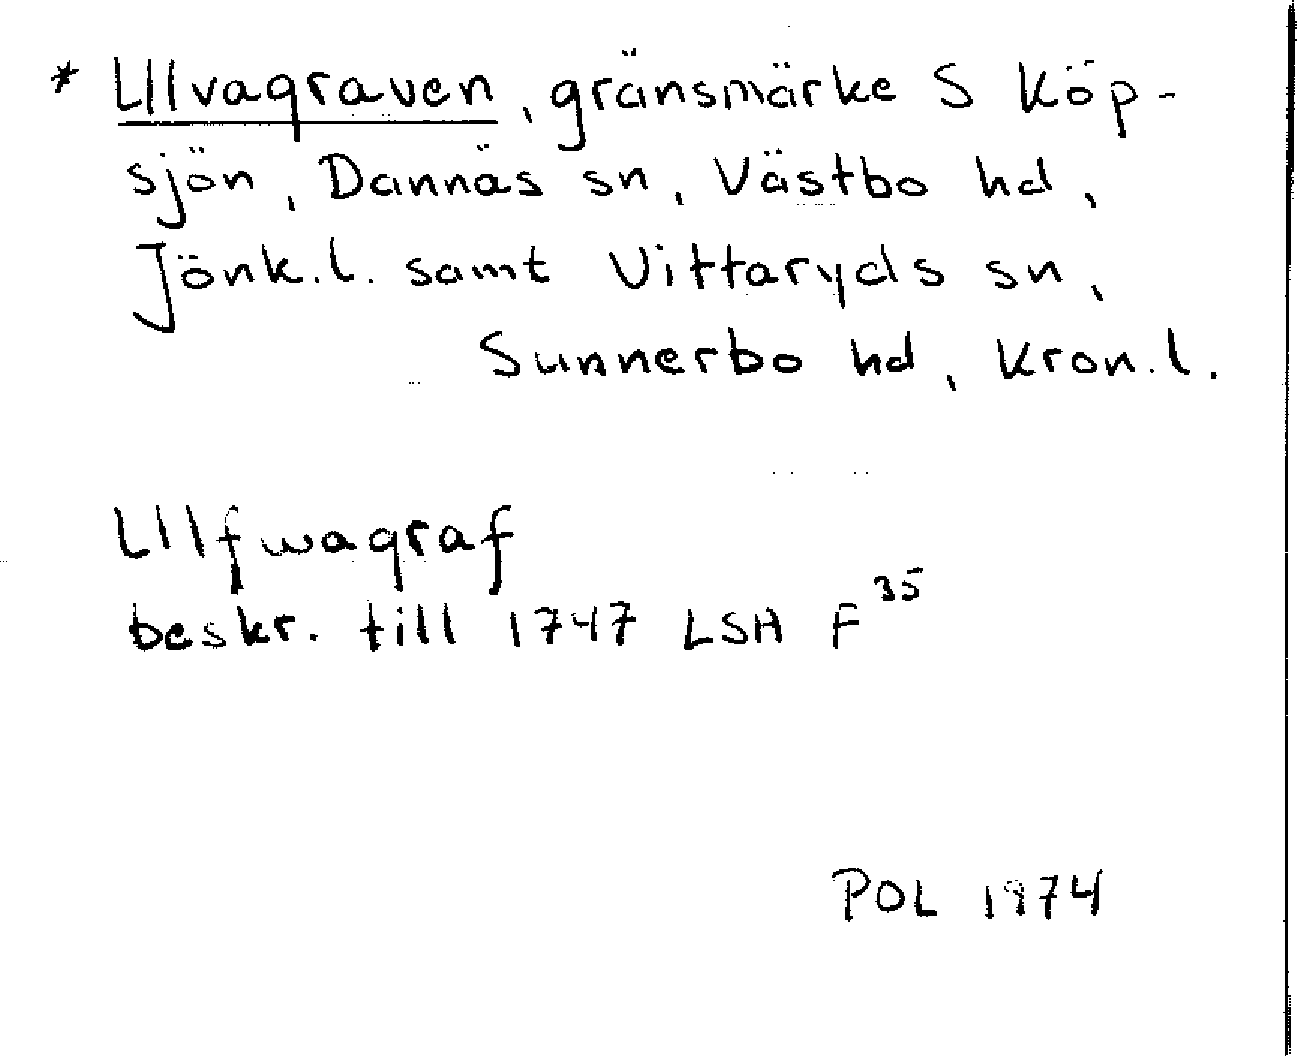 * Ulvagraven, gränsmärke S Köp-
sjön, Dannäs sn, Västbo hd,
Jönk.l. samt Vittaryds sn,
Sunnerbo hd, Kron.l.
Ulfwagraf
beskr. till 1747 LSA F35
POL 1974